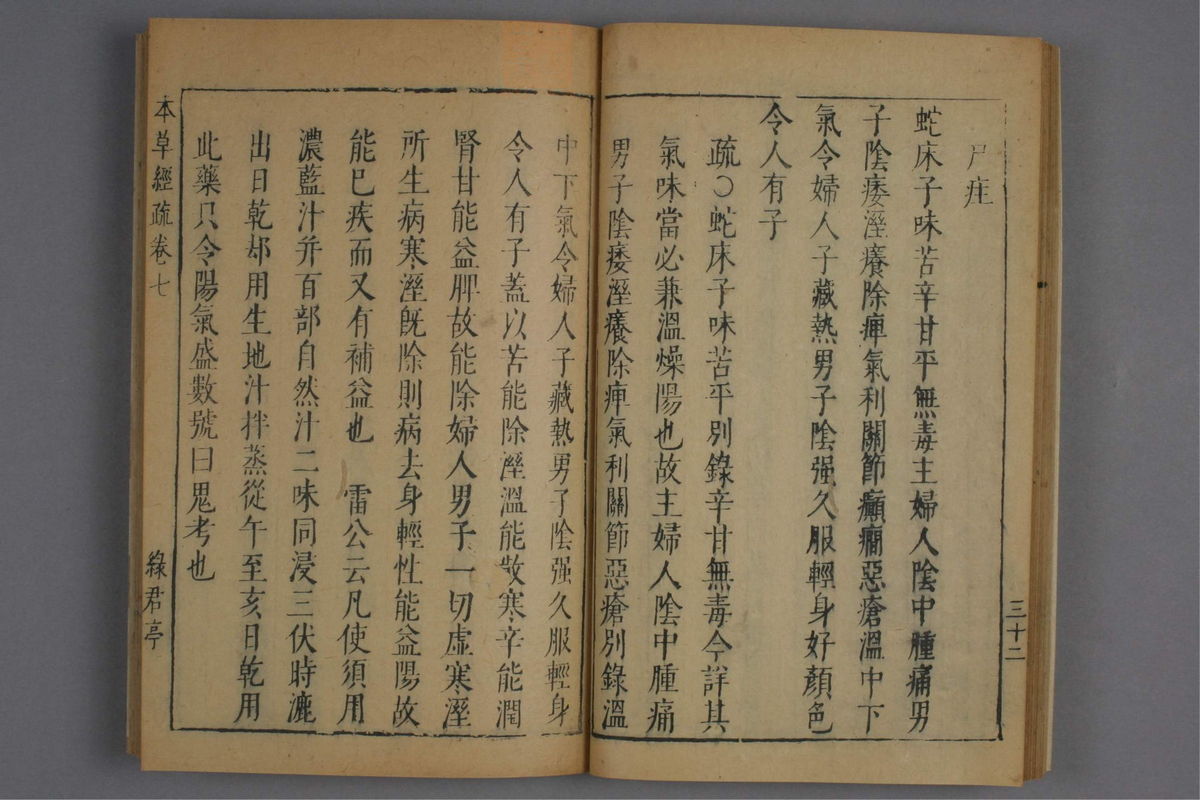 尸疰
蛇床子味苦辛甘平無毒主婦人陰中腫痛男
子陰痿溼癢除痺氣利關節癲癇惡瘡溫中下
氣令婦人子藏熱男子陰强久服輕身好顏色
令人有子
疏〇蛇床子味苦平別錄辛甘無毒今詳其
氣味當必兼溫燥陽也故主婦人陰中腫痛
男子陰痿溼癢除痺氣利關節惡瘡別錄溫
三十二
中下氣令婦人子藏熱男子陰强久服輕身
令人有子蓋以苦能除溼溫能散寒辛能潤
腎甘能益脾故能除婦人男子一切虛寒溼
所生病寒溼旣除則病去身輕性能益陽故
能巳疾而又有補益也 雷公云凡使須用
濃藍汁并百部自然汁二味同浸三伏時漉
出日乾却用生地汁拌蒸從午至亥日乾用
此藥只令陽氣盛數號曰鬼考也
本草經疏卷七
綠君亭